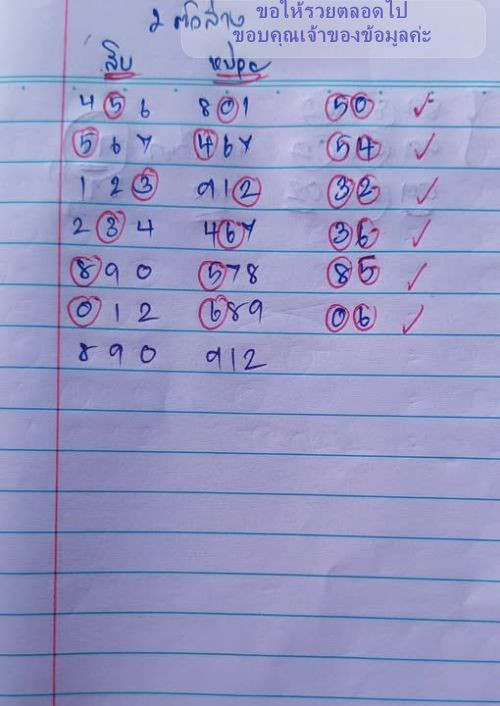 ขอให้รวยตลอดไป
2 ตัวล่าง
ขอบคุณเจ้าของข้อมูลค่ะ
สิบ หน่วย
4 5 6 8 0 1 50 ✓
5 6 7 4 6 7 54 ✓
1 2 3 9 1 2 32 ✓
2 3 4 4 6 7 36 ✓
8 9 0 5 7 8 85 ✓
0 1 2 6 8 9 06 ✓
8 9 0 9 1 2